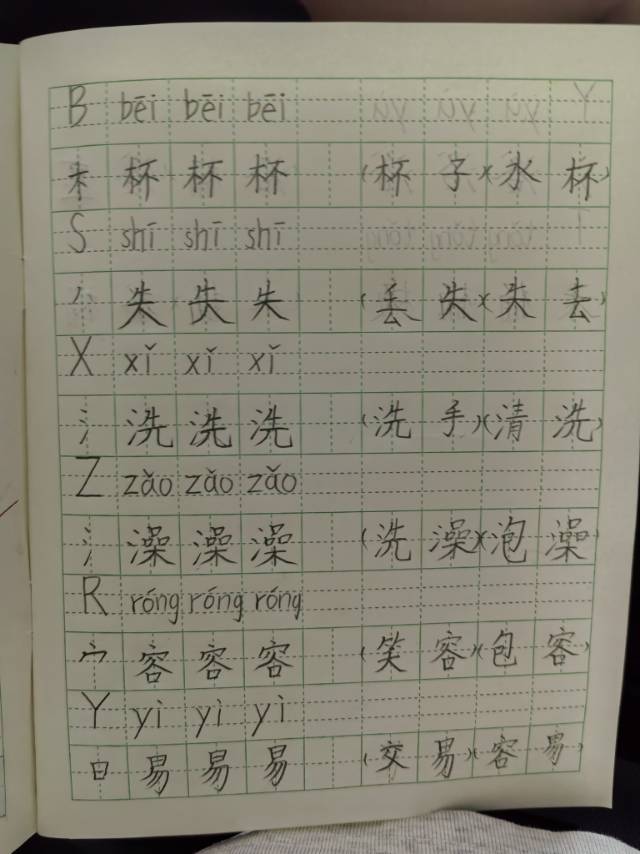 B bēi bēi bēi
木 杯 杯 杯 (杯 子)(水 杯)
S shī shī shī
丿 失 失 失 (丢 失)(失 去)
X xǐ xǐ xǐ
氵 洗 洗 洗 (洗 手)(清 洗)
Z zǎo zǎo zǎo
氵 澡 澡 澡 (洗 澡)(泡 澡)
R róng róng róng
宀 容 容 容 (笑 容)(包 容)
Y yì yì yì
日 易 易 易 (交 易)(容 易)